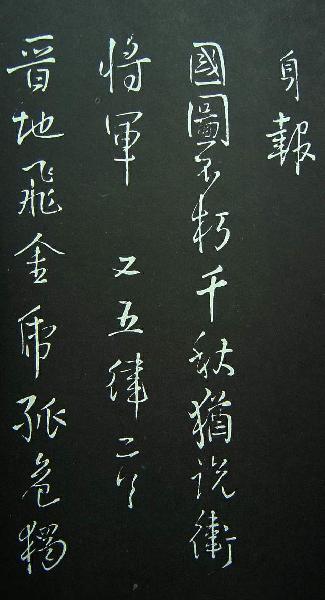 身報
國圖不朽千秋猶說衛
將軍 又五律二首
晉地飛金虎孤危獨